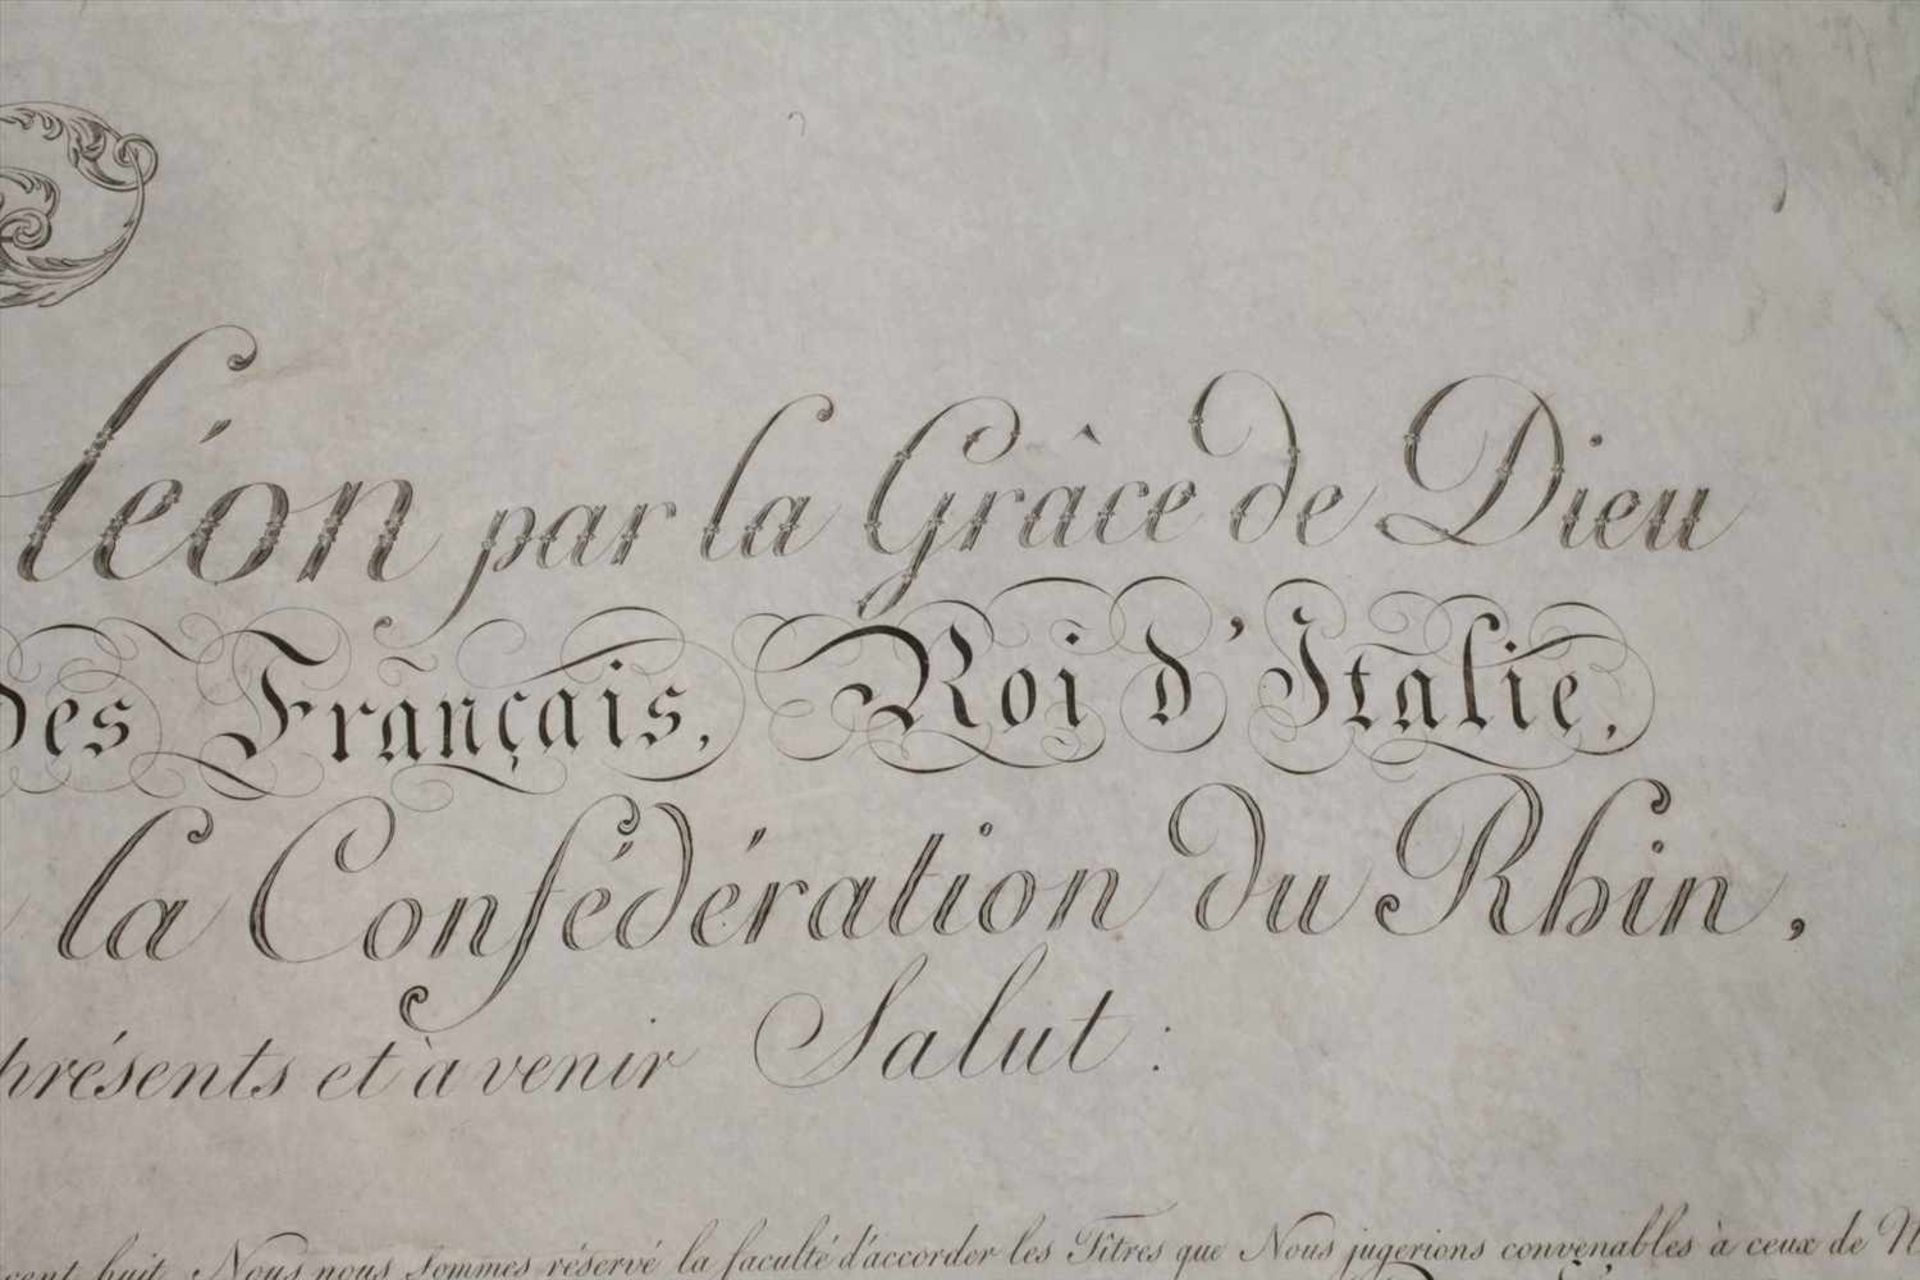 léon par la Grâce de Dieu
des Français, Roi d'Italie,
la Confédération du Rhin,
présents et à venir Salut :
cent huit, Nous nous sommes réservé la faculté d'accorder les Titres que Nous jugerions convenables à ceux de N